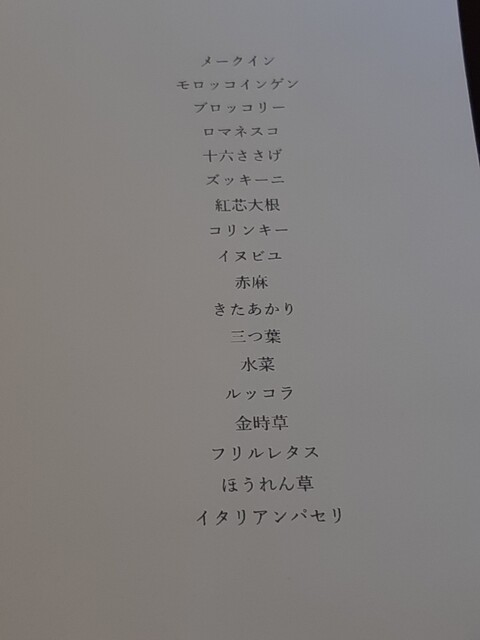 メークイン
モロッコインゲン
ブロッコリー
ロマネスコ
十六ささげ
ズッキーニ
紅芯大根
コリンキー
イヌビユ
赤麻
きたあかり
三つ葉
水菜
ルッコラ
金時草
フリルレタス
ほうれん草
イタリアンパセリ